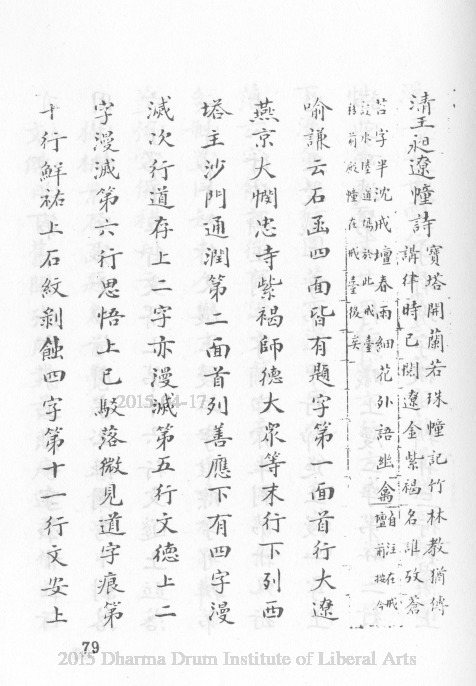 清王昶遼幢詩
寶塔開蘭若珠幢記竹林教猶傳
講律時已閱遼金紫褐名誰攷蒼
苔字半沈戒壇春雨細花外語幽禽
自注在戒
壇前按今
設水陸道場於此戒臺
前殿幢在戒臺後矣
喻謙云石函四面皆有題字第一面首行大遼
燕京大憫忠寺紫褐師德大眾等末行下列西
塔主沙門通潤第二面首列善應下有四字漫
滅次行道存上二字亦漫滅第五行文德上二
字漫滅第六行思悟上已駮落微見道字痕第
十行鮮祐上石紋剝蝕四字第十一行文安上
79
2015 Dharma Drum Institute of Liberal Arts